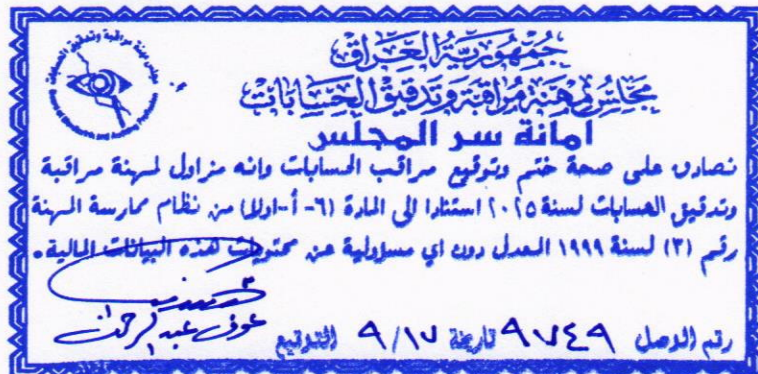 جمهورية العراق
مجلس مهنة مراقبة وتدقيق الحسابات
امانة سر المجلس
نصادق على صحة ختم وتوقيع مراقب الحسابات وانه مزاول لمهنة مراقبة
وتدقيق الحسابات لسنة ٢٠٢٥ استنادا الى المادة (٦- أ-اولا) من نظام ممارسة المهنة
رقم (٣) لسنة ١٩٩٩ المعدل دون اي مسؤولية عن محتويات لهذه البيانات المالية.
عوف عبد الرحمن
رقم الوصل ٩٧٤٩ تاريخة ٩/١٧ التوقيع